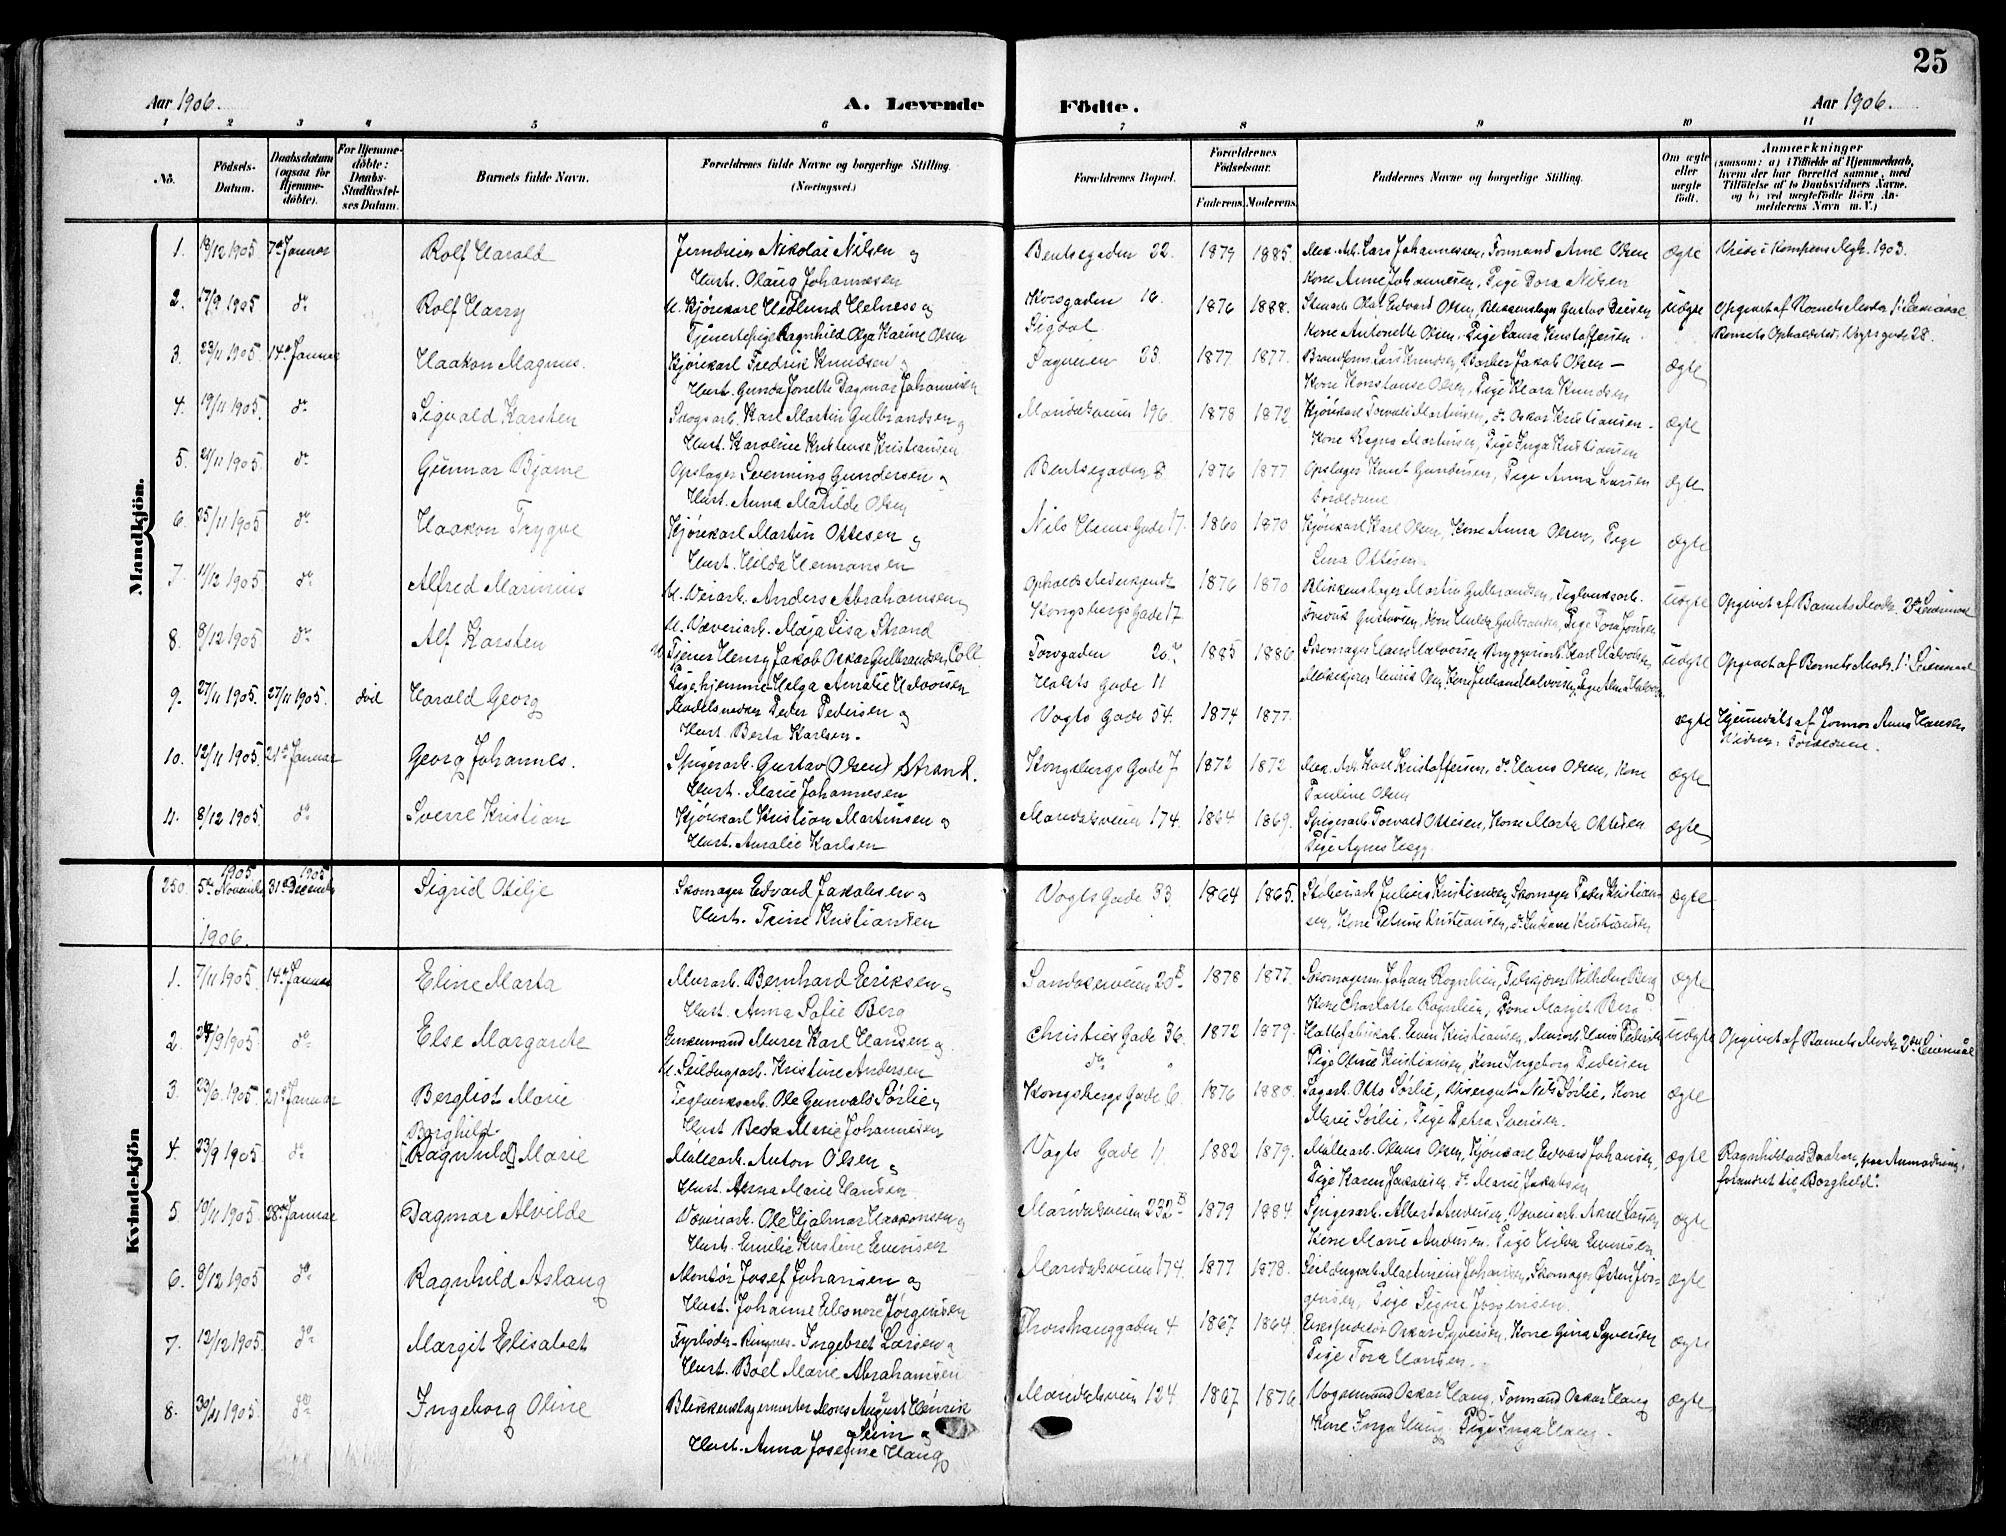 25
Aar 1906.
A. Levende Födte.
Aar 1906.
1 2 3 4 5 6 7 8 9 10 11
No.
Födsels-Datum.
Daabsdatum (ogsaa for Hjemme-döbte).
For Hjemme-döbte: Daabs-Stadfæstel-ses Datum.
Barnets fulde Navn.
Forældrenes fulde Navne og borgerlige Stilling.
(Næringsvei.)
Forældrenes Bopæl.
Forældrenes Födselsaar.
Faderens. Moderens.
Faddernes Navne og borgerlige Stilling.
Om ægte eller uægte födt.
Anmærkninger
(saasom: a) i Tilfælde af Hjemmedaab, hvem der har forrettet samme, med Tilföielse af to Daabsvidners Navne, og b) ved uægtefödte Börn An-melderens Navn m. V.)
Mandkjön.
1. 18/12 1905 7de Januar Rolf Harald Nikolai Nilsen og Bentsegaden 22. 1879 1885. Lars Johannessen, Formand Arne Olsen ægte 1903.
Hust. Olaug Johannesen Kone Anne Johannesen, Pige Dora Nilsen
2. 17/9 1905 do Rolf Harry U. Kjørekarl Hedlund Helness og Korsgaden 16. 1876 1888. Olaf Edvard Olsen, Blikkenslager Gustav uægte Opgivet af Barnets Moder 1ste Leiermaal.
Tjenestepige Ragnhild Olga Karine Olsen Sigdal Kone Antonette Olsen, Pige Laura Kristoffersen. Barnets Opholdsted, Vogtsgade 28.
3. 23/11 1905 14de Januar Haakon Magnus. Kjørekarl Fredrik Knudsen og Sagveien 23. 1877 1877. Lars Knudsen, Barber Jakob Olsen - ægte
Hust. Gunda Jonette Dagmar Johannesen Kone Konstanse Olsen, Pige Klara Knudsen
4. 19/11 1905. do Sigvald Karsten Karl Martin Gulbrandsen og Maridalsveien 196. 1878 1872 Kjørekarl Torvald Martinsen, do Oskar Kristiansen - ægte
Hust. Karoline Kristense Kristiansen Kone Ragna Martinsen, Pige Inga Kristiansen
5. 21/11 1905 do Gunnar Bjarne Opslager Svenning Gundersen og Bentsegaden 8. 1876 1877 Opslager Knut Gundersen, Pige Anna Larsen ægte
Hust. Anna Matilde Olsen Forældrene
6. 25/11 1905 do Haakon Trygve Kjørekarl Martin Ottesen og Nils Hanes Gade 17. 1860 1870 Kjørekarl Karl Olsen, Kone Anna Olsen, Pige ægte
Hust. Hilda Hermansen Lina Ottesen
7. 11/12 1905 do Alfred Marinius U. Veiarb. Anders Abrahamsen og Opholdssted ukjendt 1876 1870 Blikkenslager Martin Gulbrandsen, Teglverksarb. uægte Opgivet af Barnets Moder. 2det Leiermaal
U. Væveriarb. Maja Lisa Strand Kongsbergs Gade 17. Fredrik Gustavsen, Kone Hulda Gulbrandsen, Pige Tora Jonsen
8. 8/12 1905 do Alf Karsten U. Tjener Henry Jakob Oskar Gulbrandsen Coll Torvgaden 1885 1886 Skomager Hans Halvorsen, Bryggeriarb. Karl Halvorsen uægte Opgivet af Barnets Moder. 1ste Leiermaal
Pige hjemme Helga Amalie Halvorsen Holsts Gade 11
9. 27/11 1905. 27/11 1905. død Harald Georg Modelsnedker Peder Pedersen og Vogts Gade 54. 1874 1877. ægte Hjemmedøbt af Jonmor Anna Hansen
Hust. Berta Karlsen. Vidner: Forældrene.
10. 12/11 1905 21de Januar Georg Johannes. Spigerarb. Gustav (Olsen) Strand. Kongsbergs Gade 7 1872 1872 Karl Kristoffersen, do Hans Olsen, Kone ægte
Hust. Marie Johannesen Pauline Olsen
11. 8/12 1905. do Sverre Kristian Kjørekarl Kristian Martinsen og Maridalsveien 174. 1864 1869. Spigerarb. Torvald Ottesen, Kone Marta Ottesen ægte
Hust. Amalie Karlsen Pige Agnes Hegg.
250. 5te November 1905 31te December 1905 Sigrid Otilje Skomager Edvard Jakobsen og Vogts Gade 33 1864 1865. Støberiarb. Julius Kristiansen, Skomager Peder Kristian- ægte
Hust. Trine Kristiansen sen, Kone Petrine Kristiansen, do Kristiansen
1906.
Kvindekjön
1. 7/11 1905. 14de Januar Eline Marta Murarb. Bernhard Eriksen og Sandakerveien 20B 1878 1877. Skomagerm. Johan Rognlien, Vilhelm Berg ægte
Hust. Anna Sofie Berg Kone Charlotte Rognlien, Kone Margit Berg
2. 27/9 1905 do Else Margarete Enkemand Murer Karl Hansen og Christies Gade 36. 1872 1879. Even Kristiansen, Murarb. Hans Pedersen uægte Opgivet af Barnets Moder. 2det Leiermaal
U. Seildugsarb. Kristine Andersen do Pige Oline Kristiansen, Kone Ingeborg Pedersen
3. 23/6 1905. 21de Januar Bergliot Marie Teglverksarb. Ole Gunvald Sørlie og Kongsbergs Gade 6. 1876 1880. Sagarb. Otto Sørlie, Visergut Nils Sørlie, Kone ægte
Hust Beda Marie Johannesen Marie Sørlie, Pige Petra Svensen.
4. 23/9 1905 do Borghild [Ragnhild] Marie Mølleearb. Anton Olsen og Vogts Gade 11. 1882 1879. Møllearb. Olaus Olsen, Kjørekarl Edvard Johansen, ægte Ragnhild ved Daaben, paa Anmodning,
Hust. Anna Marie Hansen. Pige Karen Jakobsen, do Marie Jakobsen forandret til "Borghild".
5. 19/11 1905. 28de Januar Dagmar Alvilde Væveriarb. Ole Hjalmar Haakonsen og Maridalsveien 232B 1879 1884 Spigerarb. Albert Andersen, Væveriarb. Aksel Larsen ægte
Hust. Emilie Kristine Evensen Kone Marie Andersen. Pige Hilda Evensen.
6. 8/12 1905 do Ragnhild Aslaug Montør Josef Johansen og Maridalsveien 174. 1877 1878. Seildugsarb. Martinius Johansen, Skomager Østen Jør- ægte
Hust. Johanne Eleonore Jørgensen gensen, Pige Signe Jørgensen.
7. 12/12 1905. do Margit Elisabet Fyrbøder - Ringnes - Ingebret Larsen og Thorshauggaden 4. 1867 1864. Oskar Syversen, Kone Gina Syversen ægte
Hust. Boel Marie Abrahamsen Pige Tora Hansen.
8. 30/11 1905. do Ingeborg Oline Blikkenslagermester Mons August Henrik Maridalsveien 124 1867 1876 Vognmand Oskar Haug, Formand Oskar Haug ægte
Seim og Kone Inga Haug Pige Inga Haug.
Hust. Anna Josefine Haug